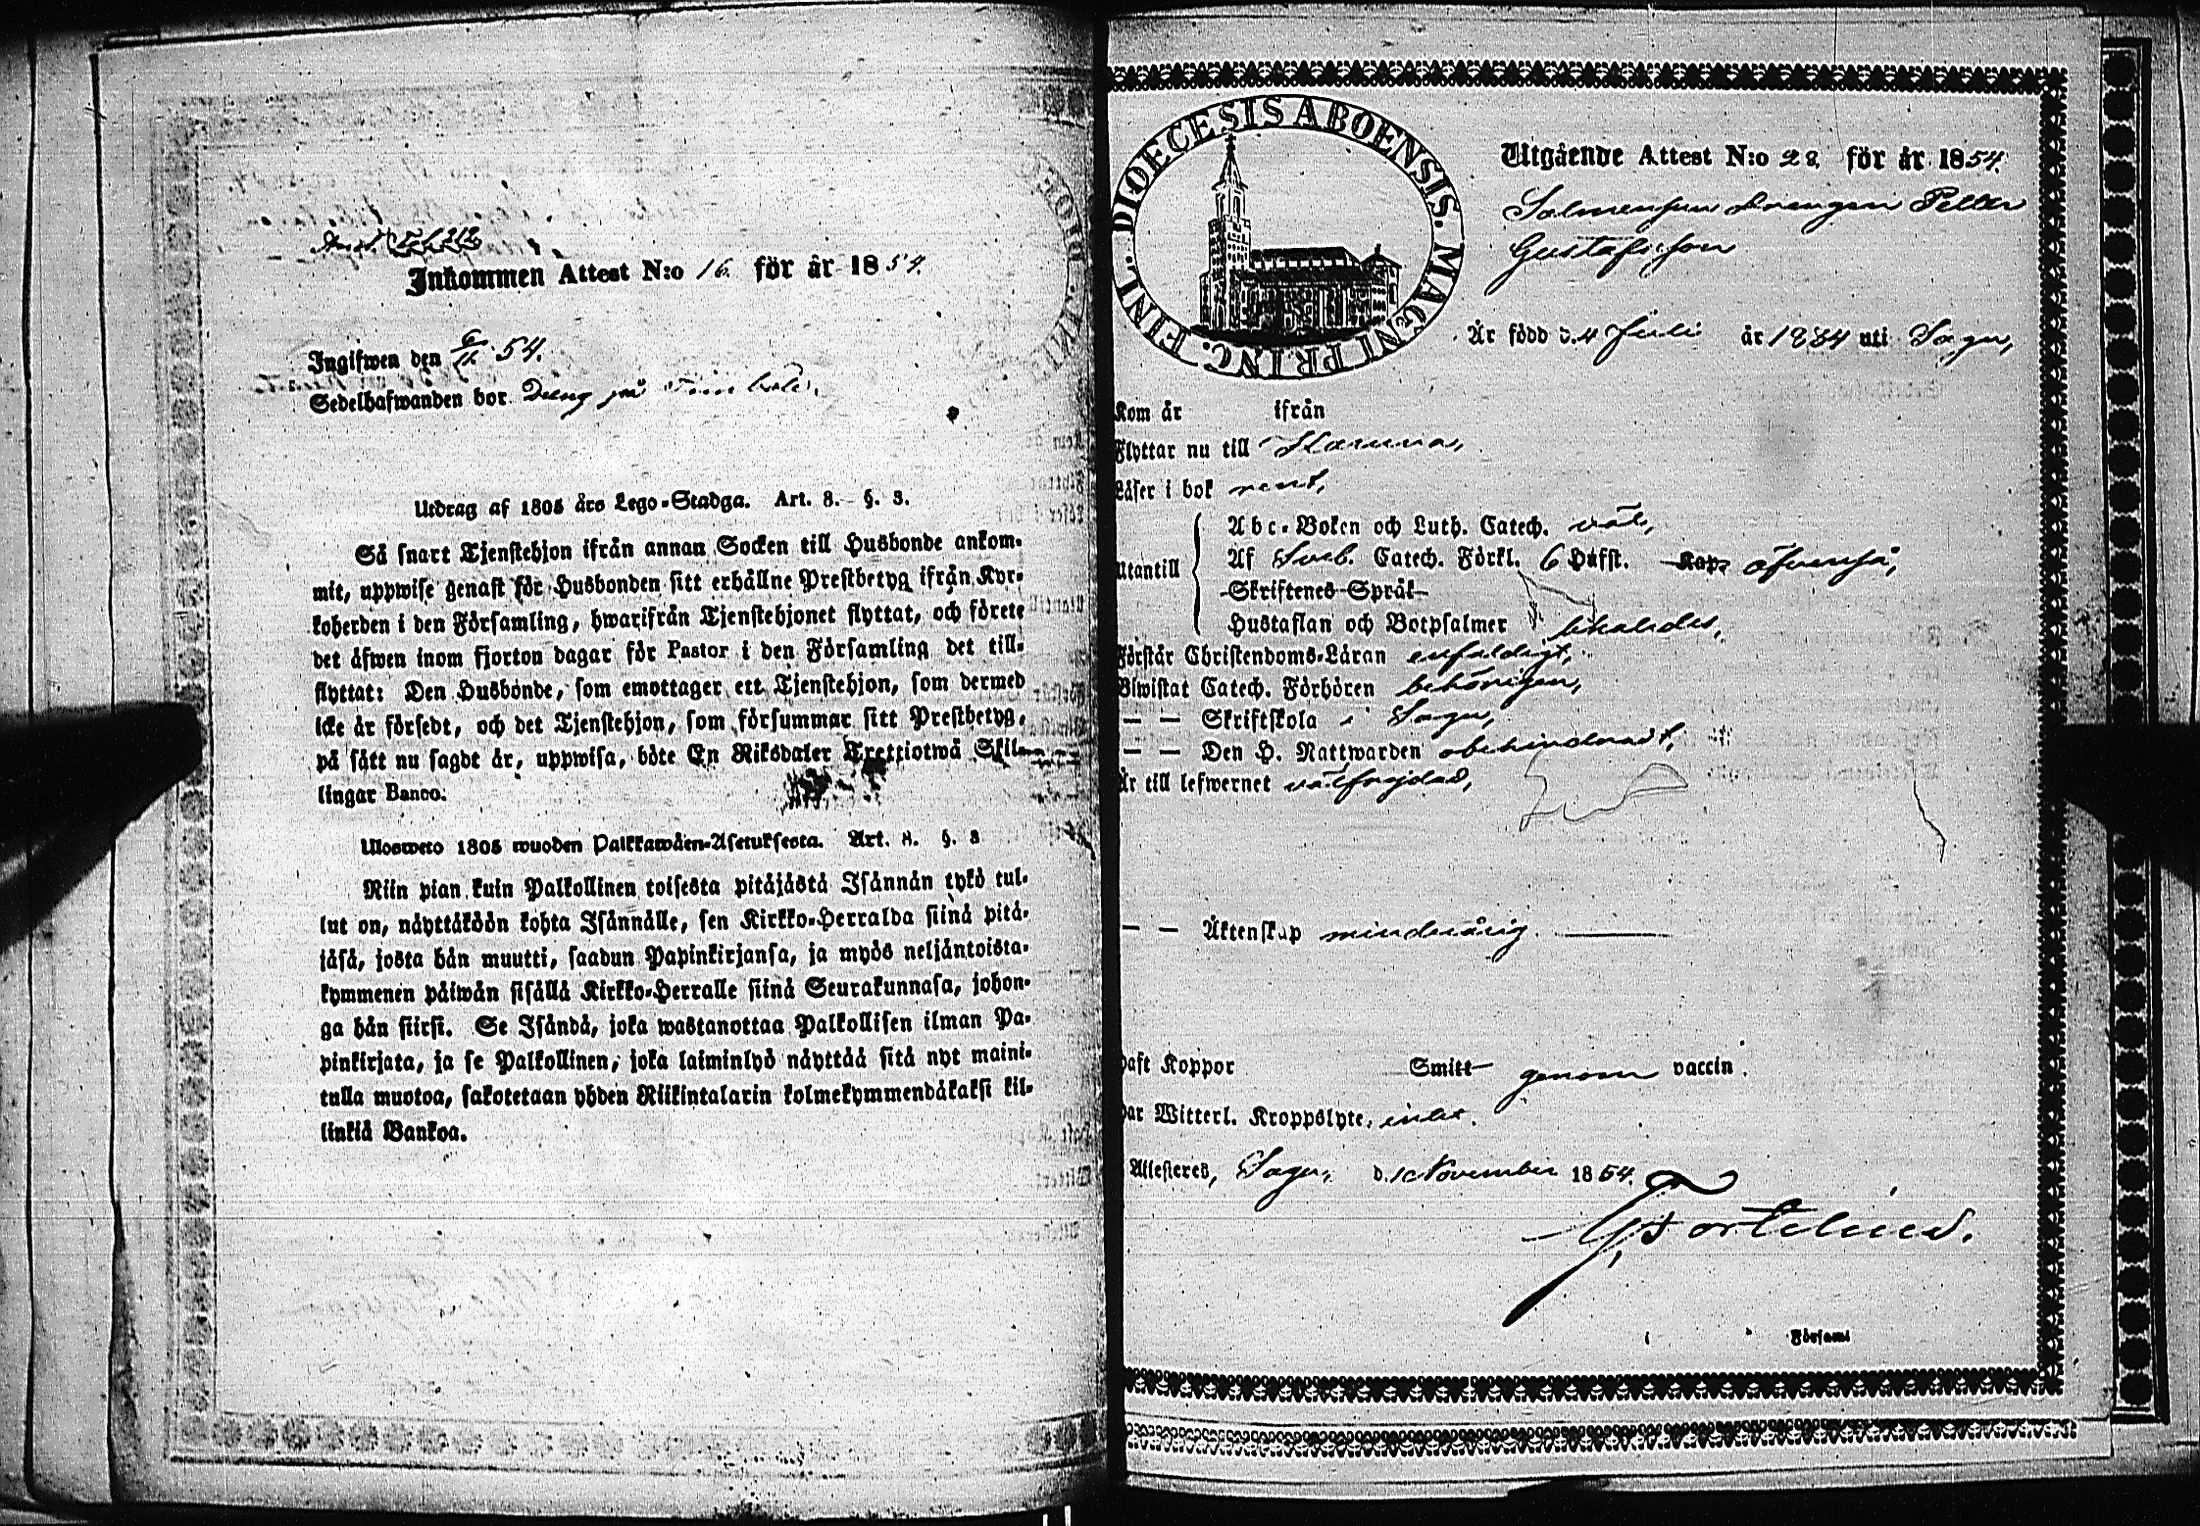 Inkommen Attest N:o 16. för år 1854.
Ingifwen den 6/11 54.
Sedelhafwanden bor Dreng på
Utdrag af 1805 års Lego-Stadga. Art. 8. §. 3.
Så snart Tjenstehjon ifrån annan Socken till Husbonde ankom-
mit, uppwise genast för Husbonden sitt erhållne Prestbetyg ifrån Kyr-
koherden i den Församling, hwarifrån Tjenstehjonet flyttat, och förete
det äfwen inom fjorton dagar för Pastor i den Församling det till-
flyttat: Den Husbonde, som emottager ett Tjenstehjon, som dermed
icke är försedt, och det Tjenstehjon, som försummar sitt Prestbetyg,
på sätt nu sagdt är, uppwisa, böte En Riksdaler Trettiotwå Skil-
lingar Banco.
Ulosweto 1805 wuoden Palkkawäen-Asetuksesta. Art. 8. §. 3
Niin pian kuin Palkollinen toisesta pitäjästä Isännän tykö tul-
lut on, näyttäköön kohta Isännälle, sen Kirkko-Herralda siinä pitä-
jäsä, josta hän muutti, saadun Papinkirjansa, ja myös neljäntoista-
kymmenen päiwän sisällä Kirkko-Herralle siinä Seurakunnasa, johon-
ga hän siirsi. Se Isändä, joka wastanottaa Palkollisen ilman Pa-
pinkirjata, ja se Palkollinen, joka laiminlyö näyttää sitä nyt maini-
tulla muotoa, sakotetaan yhden Riikintalarin kolmekymmendäkaksi kil-
linkiä Bankoa.
DIOECESIS ABOENSIS. MAGNI PRINC. FINL.
Utgående Attest N:o 28 för år 1854.
drengen Petter
Gustafsson
Är född d. 4 Juli år 1834 uti Sagu,
Kom år ifrån
Flyttar nu till Karuna,
Läser i bok rent,
Utantill
Abc-Boken och Luth. Catech. väl,
Af Sveb. Catech. Förkl. 6 Hufst. Kap. äfvenså,
Skriftenes Språk
Hustaflan och Botpsalmer
Förstår Christendoms-Läran enfaldigt,
Biwistat Catech. Förhören behörigen,
— — Skriftskola i Sagu,
— — Den H. Nattwarden obehindradt,
Är till lefwernet välfrejdad,
— — Äktenskap minderårig.
Haft Koppor Smitt genom vaccin.
Har Witterl. Kroppslyte, intet.
Attesteres, Sagu, d. 1 November 1854.
Fortelius.
i Församl